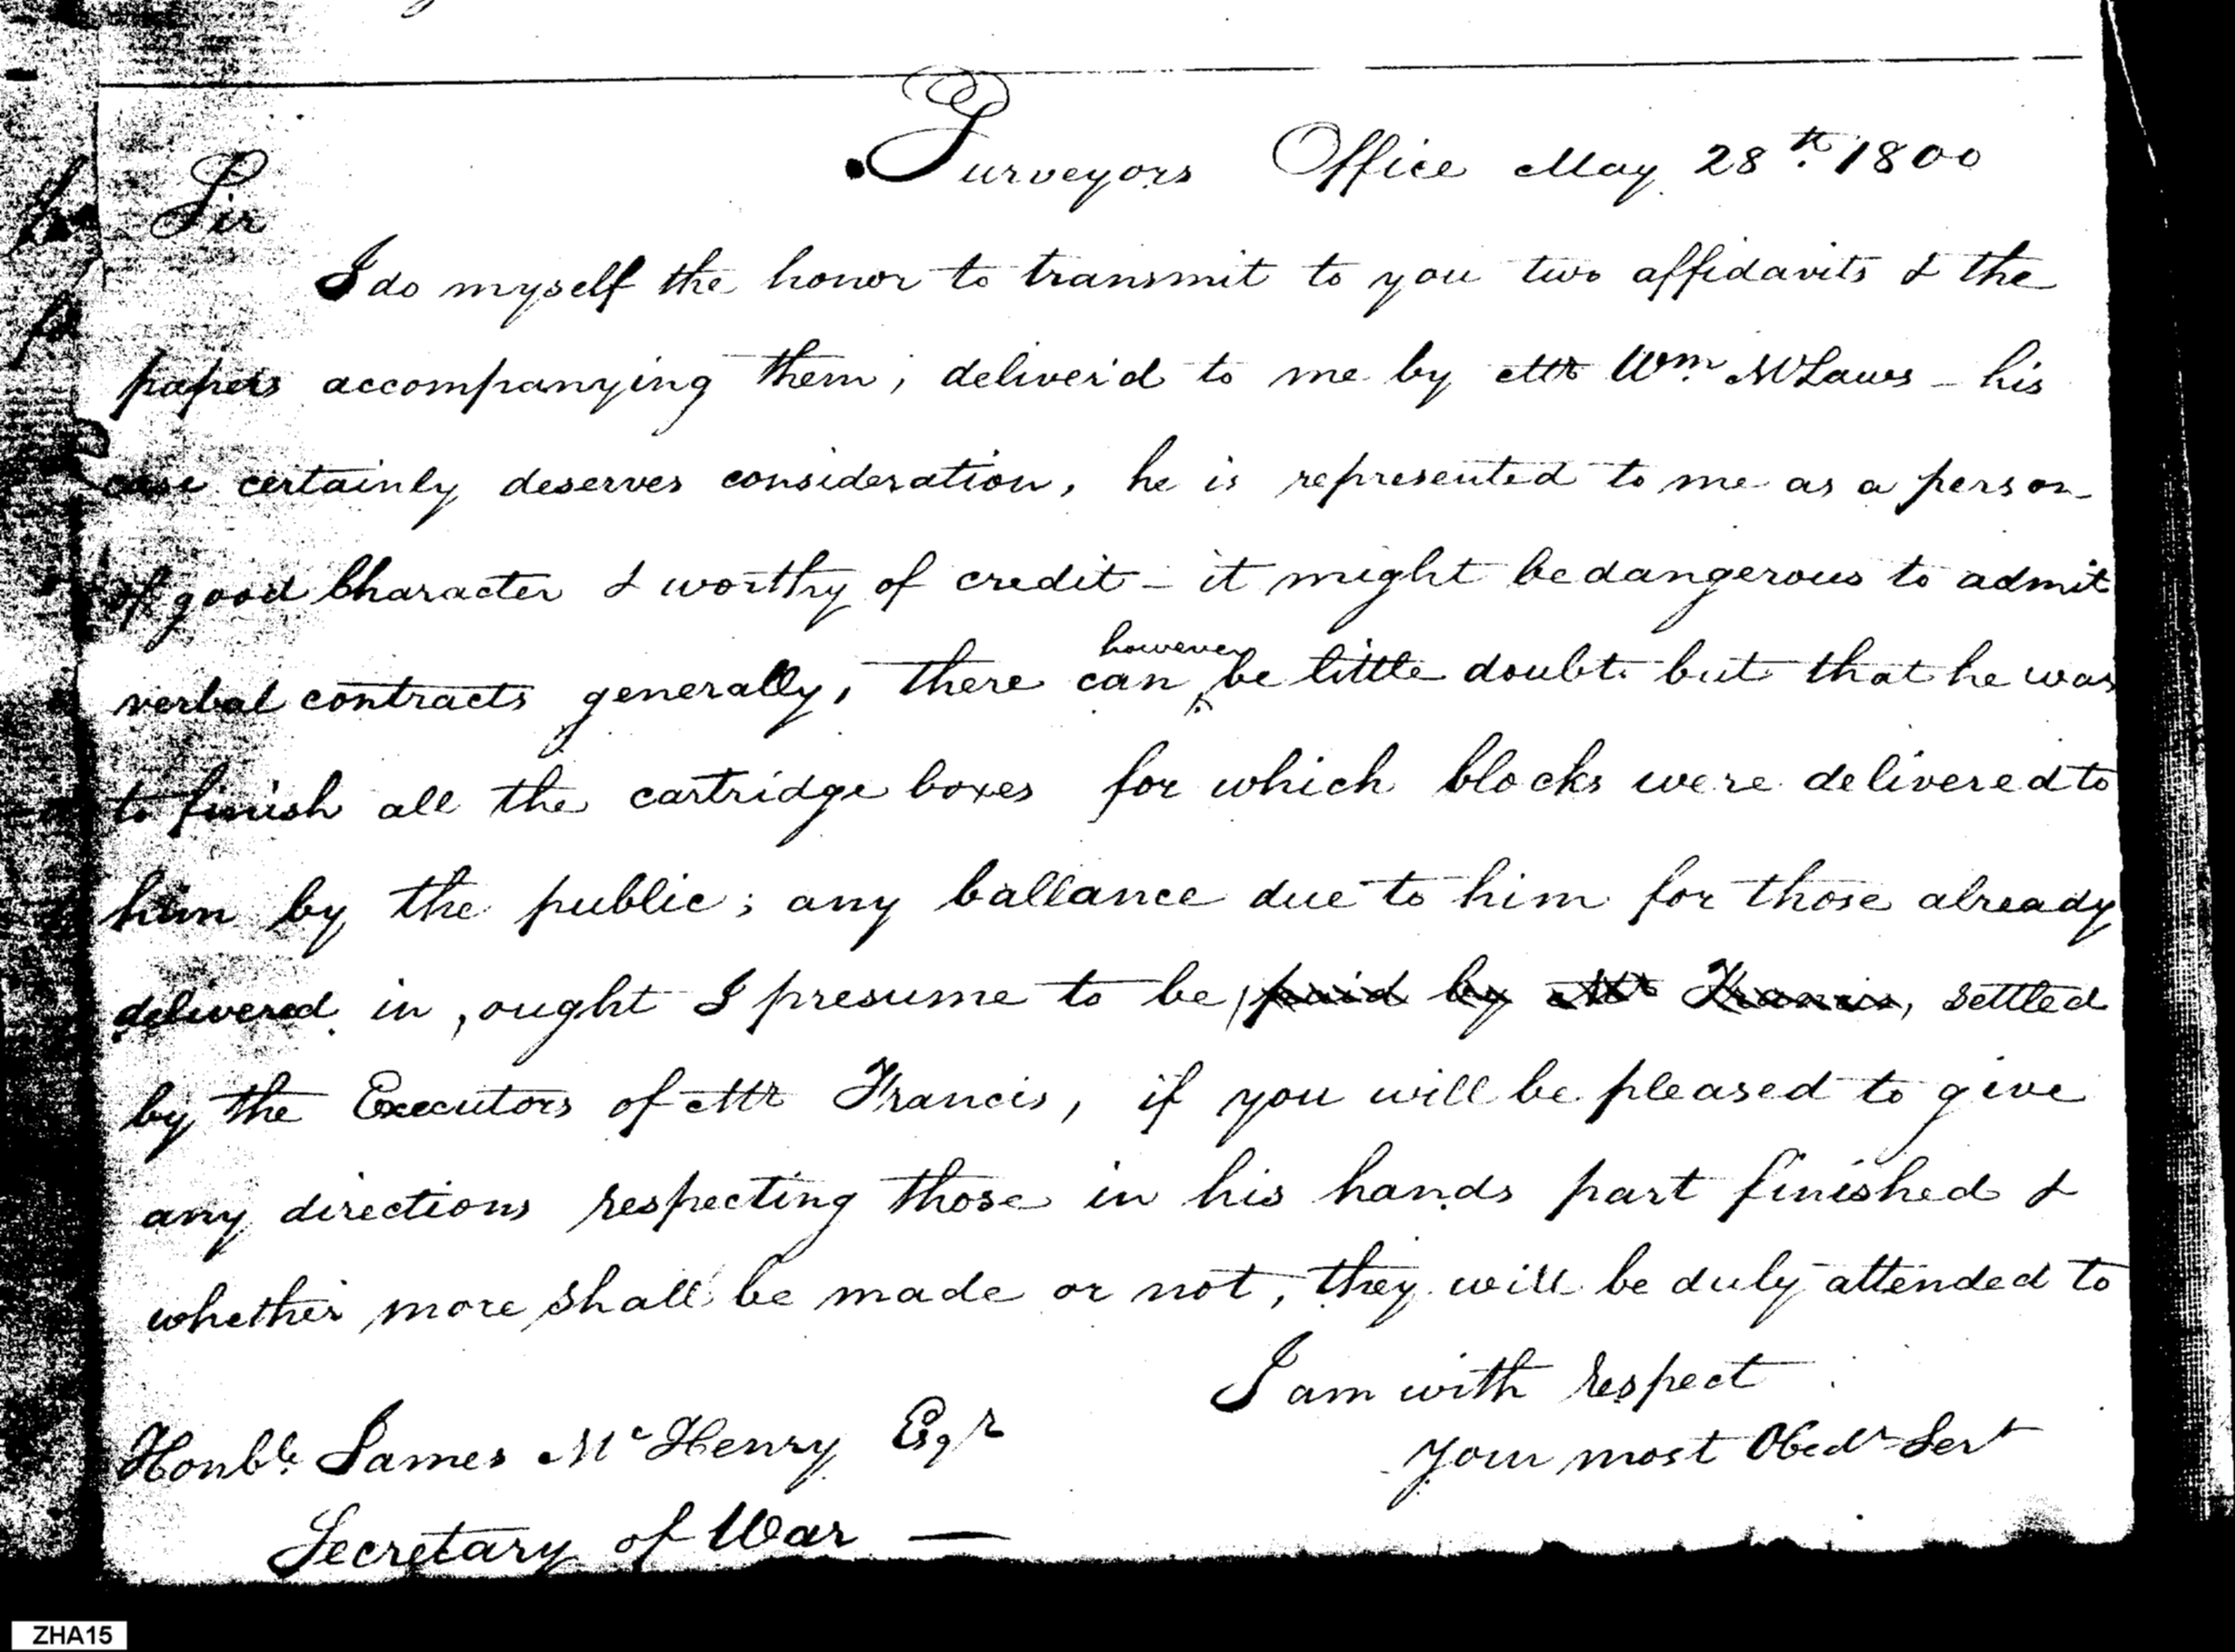 Purveyors Office May 28th. 1800
Sir
I do myself the honor to transmit to you two affidavits & the
papers accompanying them, deliver'd to me by Mr Wm. McLaws – his
case certainly deserves consideration, he is represented to me as a person
of good Character & worthy of credit – it might be dangerous to admit
verbal contracts generally, there can however be little doubt but that he was
to finish all the cartridge boxes for which blocks were delivered to
him by the public; any ballance due to him for those already
delivered in, ought I presume to be paid by Mr Francis, settled
by the Executors of Mr Francis, if you will be pleased to give
any directions respecting those in his hands part finished &
whether more shall be made or not, they will be duly attended to
I am with respect
Your most Obedt Sert
Honble. James McHenry Esqr
Secretary of War —
ZHA15